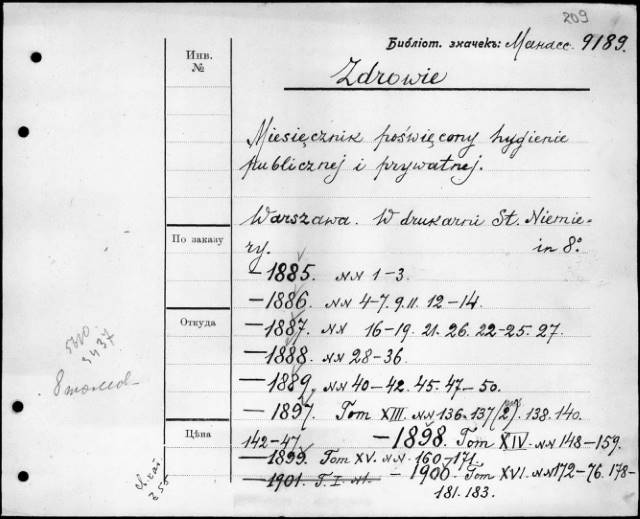 209
Библіот. значекъ: Манасс. 9189.
Инв.
№
Zdrowie
Miesięcznik poświęcony hygienie
publicznej i prywatnej.
Warszawa. W drukarni St. Niemie-
ry. in 8°.
По заказу
— 1885. №№ 1-3.
— 1886. №№ 4-7. 9. 11. 12-14.
Откуда
— 1887. №№ 16-19. 21. 26. 22-25. 27.
— 1888. №№ 28-36.
— 1889. №№ 40-42. 45. 47-50.
— 1897. Tom XIII. №№ 136. 137 (2). 138. 140.
Цѣна
142-47 — 1898. Tom XIV. №№ 148-159.
— 1899. Tom XV. №№ 160-171.
— 1901. T. I. №1. — 1900. Tom XVI. №№ 172-76. 178-
181. 183.
8 томов